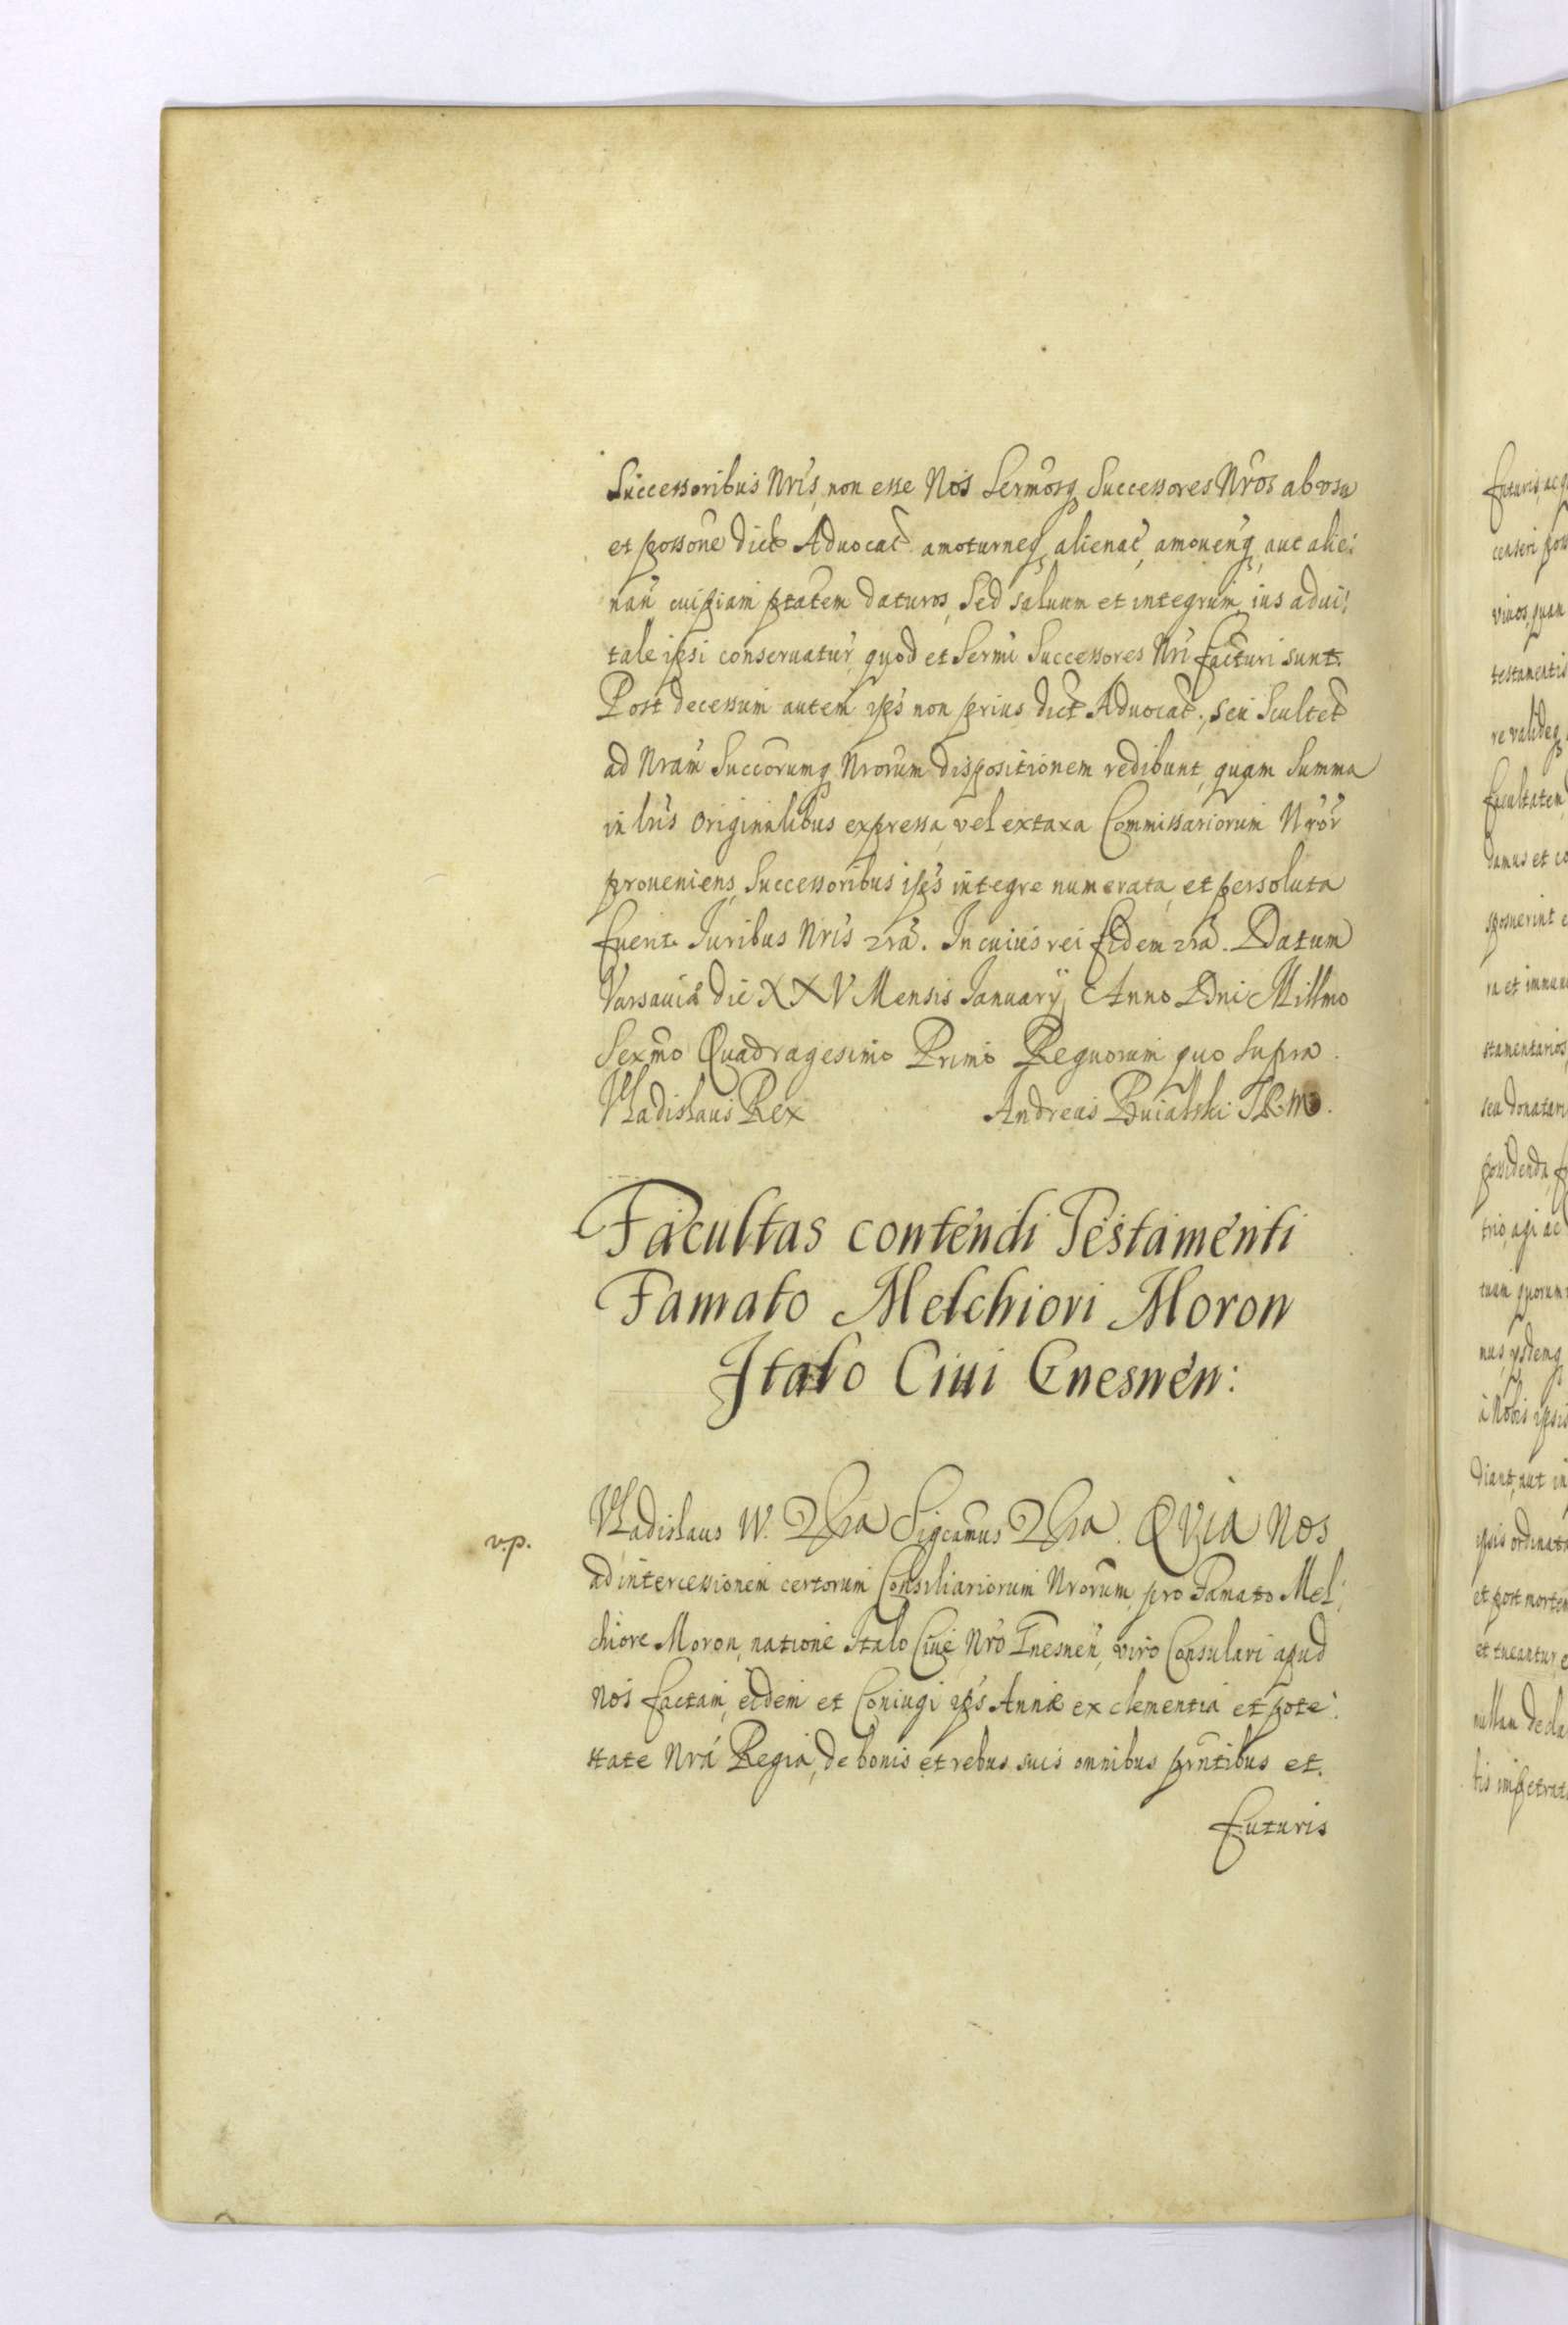 Successoribus Nris, non esse Nos Sermosq Successores Nros ab vsu
et possone dict Aduocat amoturneq alienat, amouenq, aut alie:
nan cuipiam ptatem daturos, Sed saluum et integrum ius adui:
tale ipsi conseruatur, quod et Sermi Successores Nri facturi sunt.
Post decessum autem ips non prius dict Aduocat:, seu Scultet
ad Nram Succorumq Nrorum dispositionem redibunt, quam Summa
in lris originalibus expressa, vel extaxa Commissariorum Nror
proueniens, Successoribus ips integre numerata, et persoluta
fuerit. Iuribus Nris 2ra. In cuius rei fidem 2ra. Datum
Varsauiæ die XXV Mensis Ianuarÿ Anno Dni Millmo
Sexmo Quadragesimo Primo Regnorum quo supra.
Vladislaus Rex Andreas Buialski
Facultas contendi Testamenti
Famato Melchiori Moron
Italo Ciui Gnesnen:
v.p.
Vladislaus IV. 2hra Sigcamus 2hra. QVia Nos
ad intercessionem certorum Consiliariorum Nrorum, pro Famato Mel:
chiore Moron, natione Italo Ciue Nro Gnesnen, viro Consulari apud
Nos factam, eidem et Coniugi ips Annæ ex clementia et pote:
state Nra Regia, de bonis et rebus suis omnibus prntibus et
futuris
futuris, ac
censeri
viuos, quam
testamentis
re valideq
facultatem
damus et co
sposuerint e
stamentarios
possidenda
trio, agi ac
tuam quorum
nus, ysdemq
à Nobis ipsis
diant, aut in
ipsis ordinat
et post mortem
et tueantur
nullam decla
tis impetrat